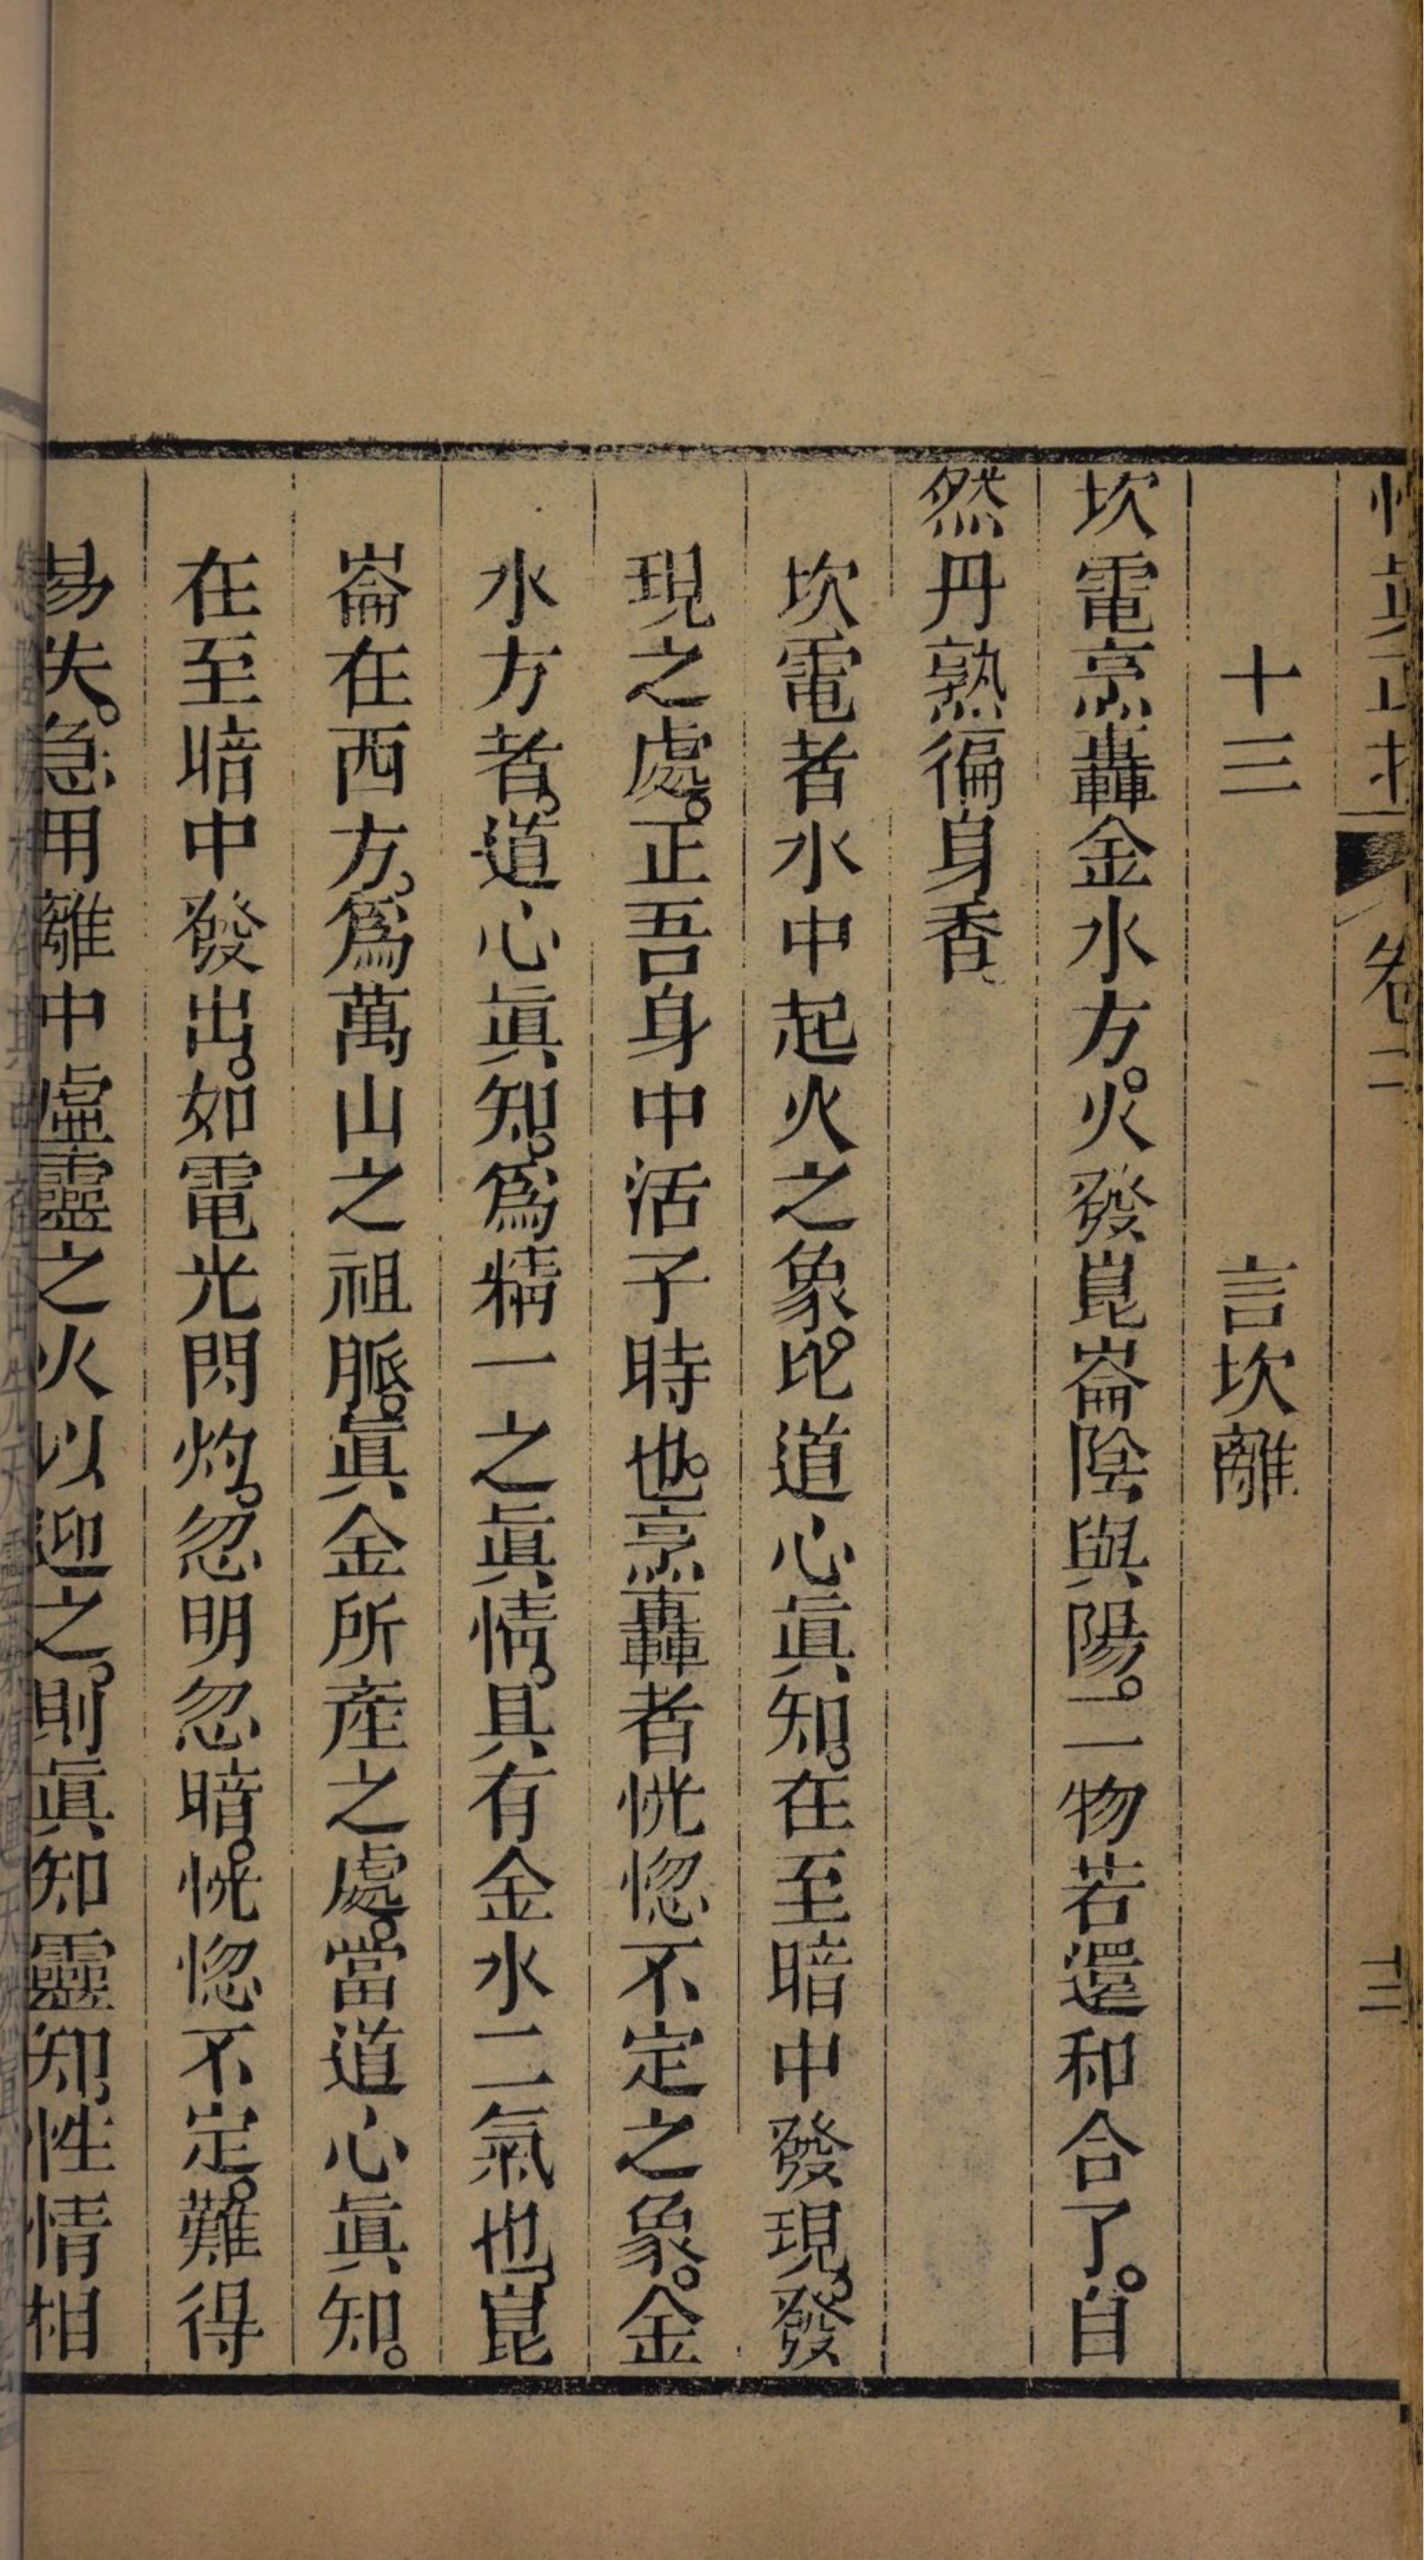 悟眞直指 卷二 十三
十三 言坎離
坎電烹轟金水方。火發崑崙陰與陽。二物若還和合了。自
然丹熟徧身香。
坎電者水中起火之象。比道心眞知。在至暗中發現。發
現之處。正吾身中活子時也。烹轟者恍惚不定之象。金
水方者。道心眞知。爲精一之眞情。具有金水二氣也。崑
崙在西方。爲萬山之祖脈。眞金所產之處。當道心眞知。
在至暗中發出。如電光閃灼。忽明忽暗。恍惚不定。難得
易失。急用離中虛靈之火以迎之。則眞知靈知。性情相